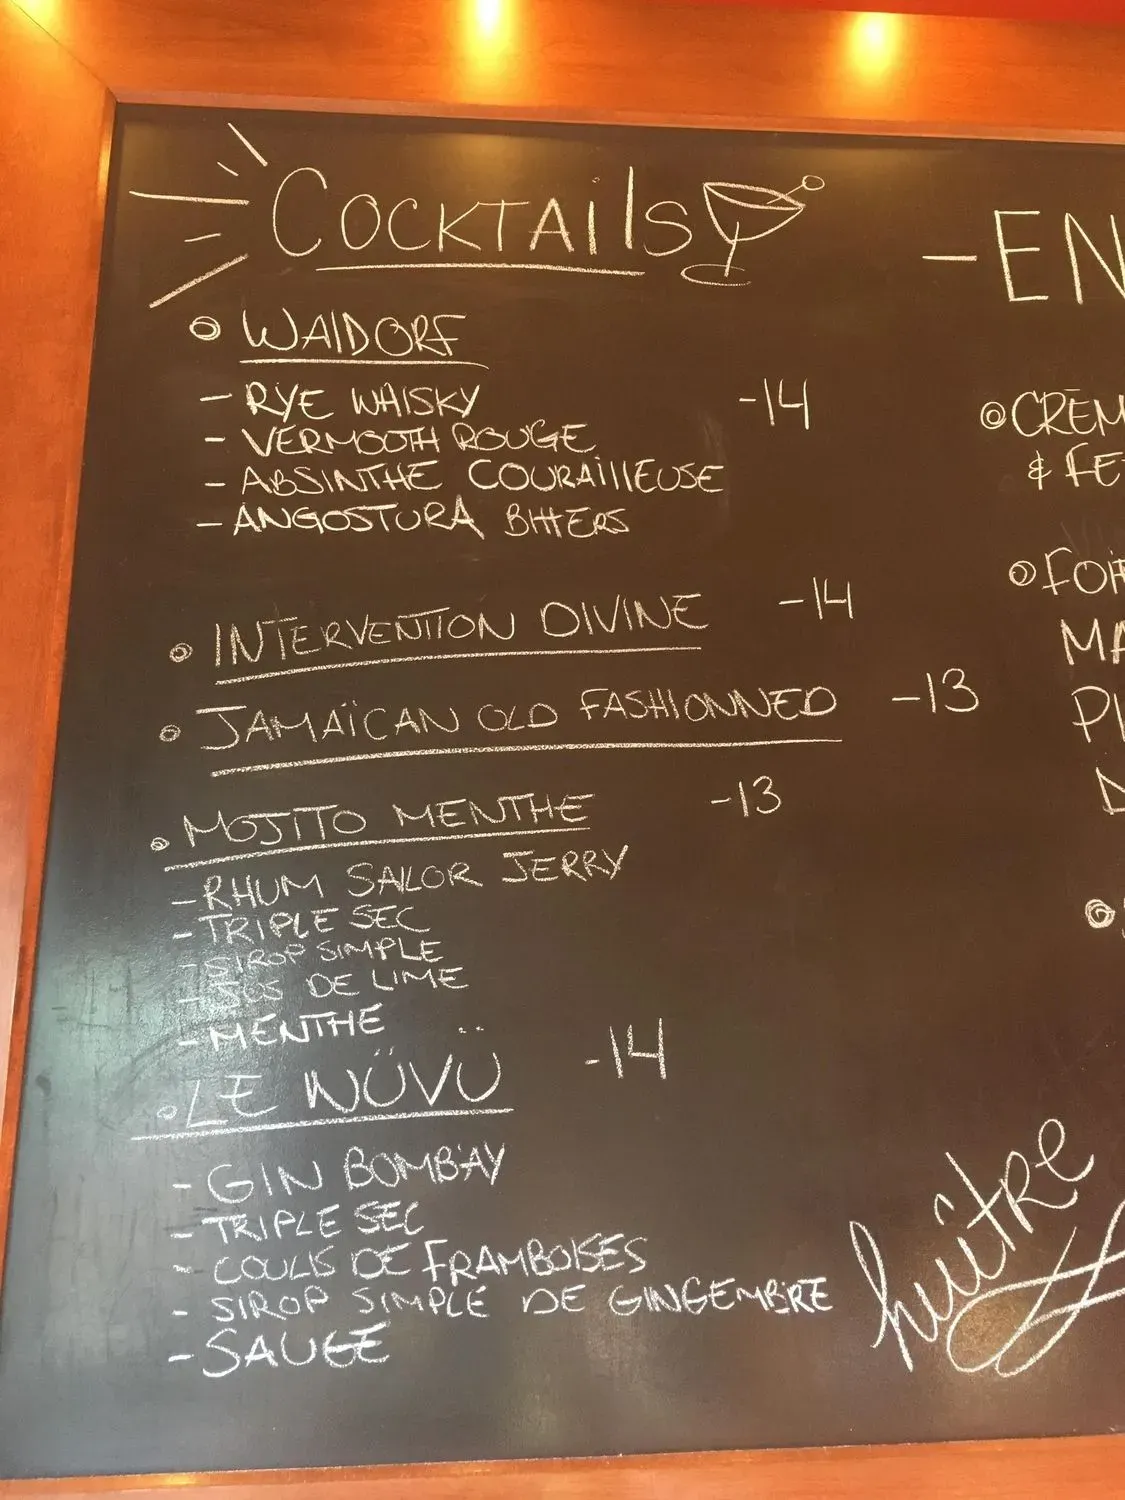 COCKTAils
WAlDORF
- RYE WHISKY -14
- VERMOOTH ROUGE
- ABSINTHE COURAILLEUSE
- ANGOSTURA BITTERS
INTERVENTION DIVINE -14
JAMAÏCAN OLD FASHIONNED -13
MOJITO MENTHE -13
- RHUM SAILOR JERRY
- TRIPLE SEC
- SIROP SIMPLE
- JUS DE LIME
- MENTHE
LE WÜVÜ -14
- GIN BOMBAY
- TRIPLE SEC
- COULIS DE FRAMBOISES
- SIROP SIMPLE DE GINGEMBRE
- SAUGE
- EN
CRÈM
& FE
FOI
MA
huître